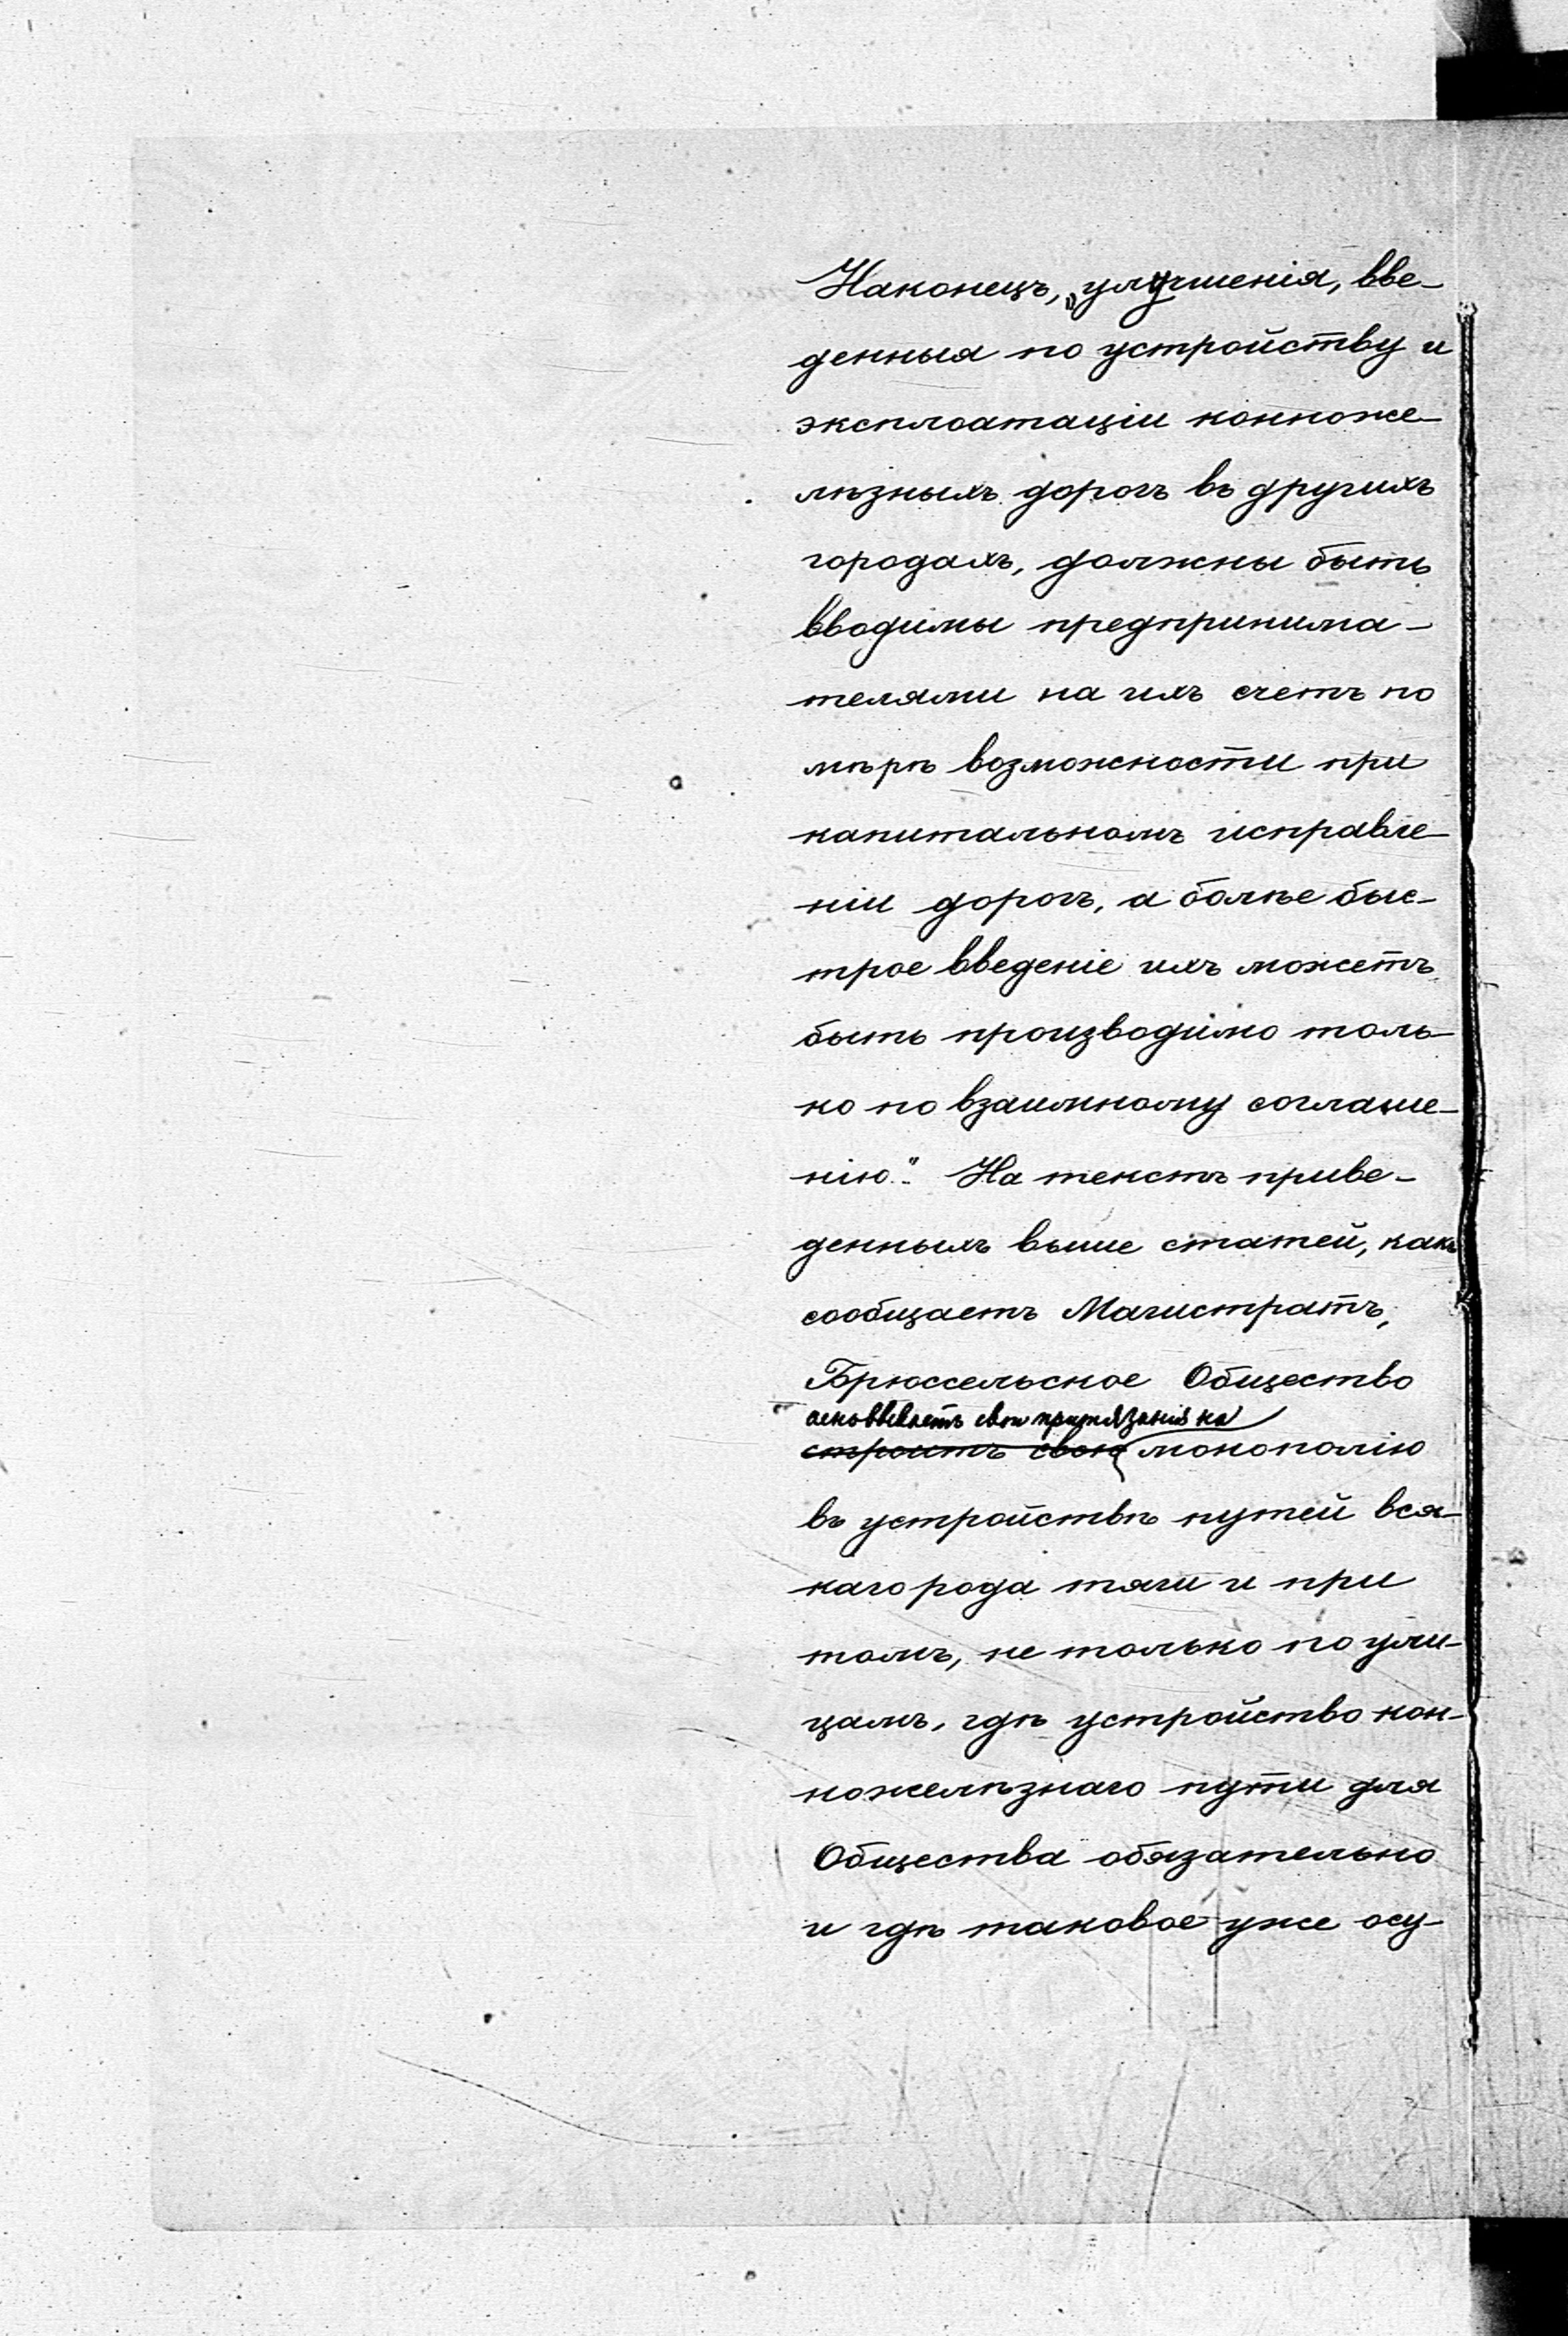 Наконецъ, „улучшенія, вве-
денныя по устройству и
эксплоатаціи конноже-
лѣзныхъ дорогъ въ другихъ
городахъ, должны быть
вводимы предпринима-
телями на ихъ счетъ по
мѣрѣ возможности при
капитальномъ исправле-
ніи дорогъ, а болѣе быс-
трое введеніе ихъ можетъ
быть производимо толь-
ко по взаимному соглаше-
нію". На текстъ приве-
денныхъ выше статей, какъ
сообщаетъ Магистратъ,
Брюссельское Общество
основываетъ свои притязанія на
строитъ свою монополію
въ устройствѣ путей вся-
каго рода тяги и при
томъ, не только по ули-
цамъ, гдѣ устройство кон-
ножелѣзнаго пути для
Общества обязательно
и гдѣ таковое уже осу-